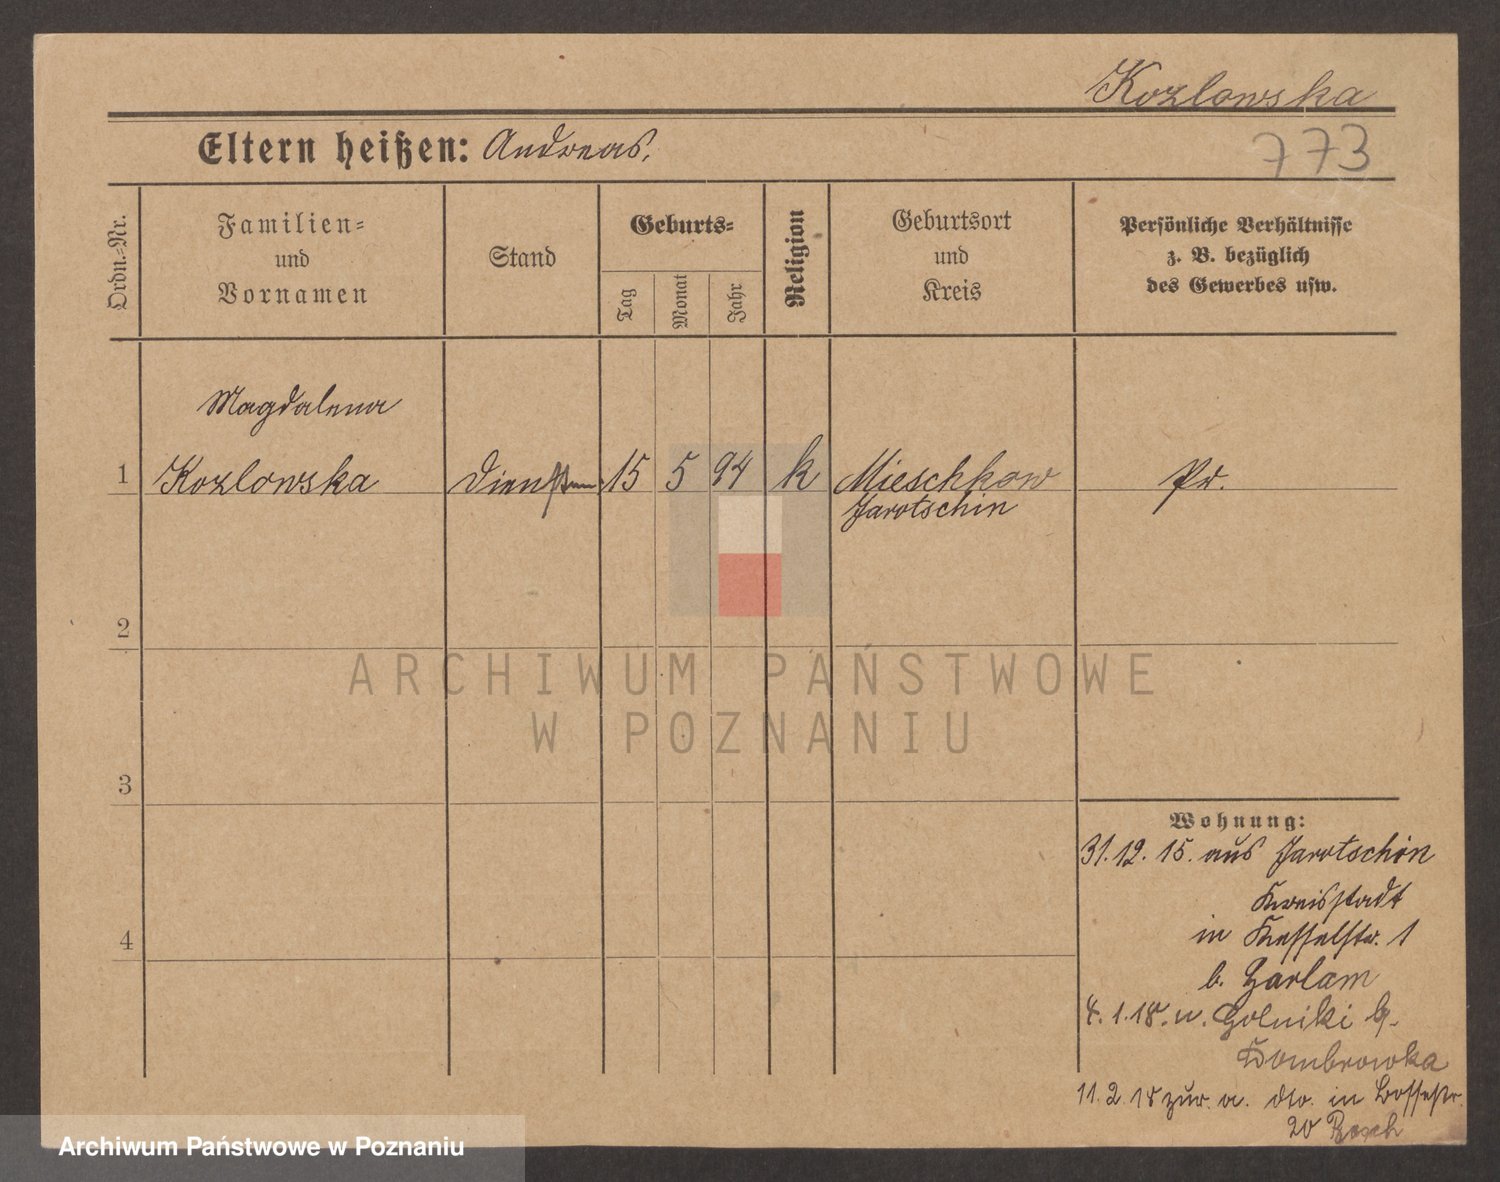 Kozlowska
Eltern heißen: Andreas.
773
Ordn.-Nr.
Familien-
und
Vornamen
Stand
Geburts-
Tag
Monat
Jahr
Religion
Geburtsort
und
Kreis
Persönliche Verhältnisse
z. B. bezüglich
des Gewerbes usw.
Magdalena
1 Kozlowska 15 5 94 k Mieschkow Pr.
Jarotschin
2
3
4
Wohnung:
31.12.15. aus Jarotschin
Kreisstadt
in Kesselstr. 1
b. Harlam
4.1.18. n. Golniki b.
Dombrowka
11.2.18 zur. a. dto. in
20
ARCHIWUM PAŃSTWOWE
W POZNANIU
Archiwum Państwowe w Poznaniu